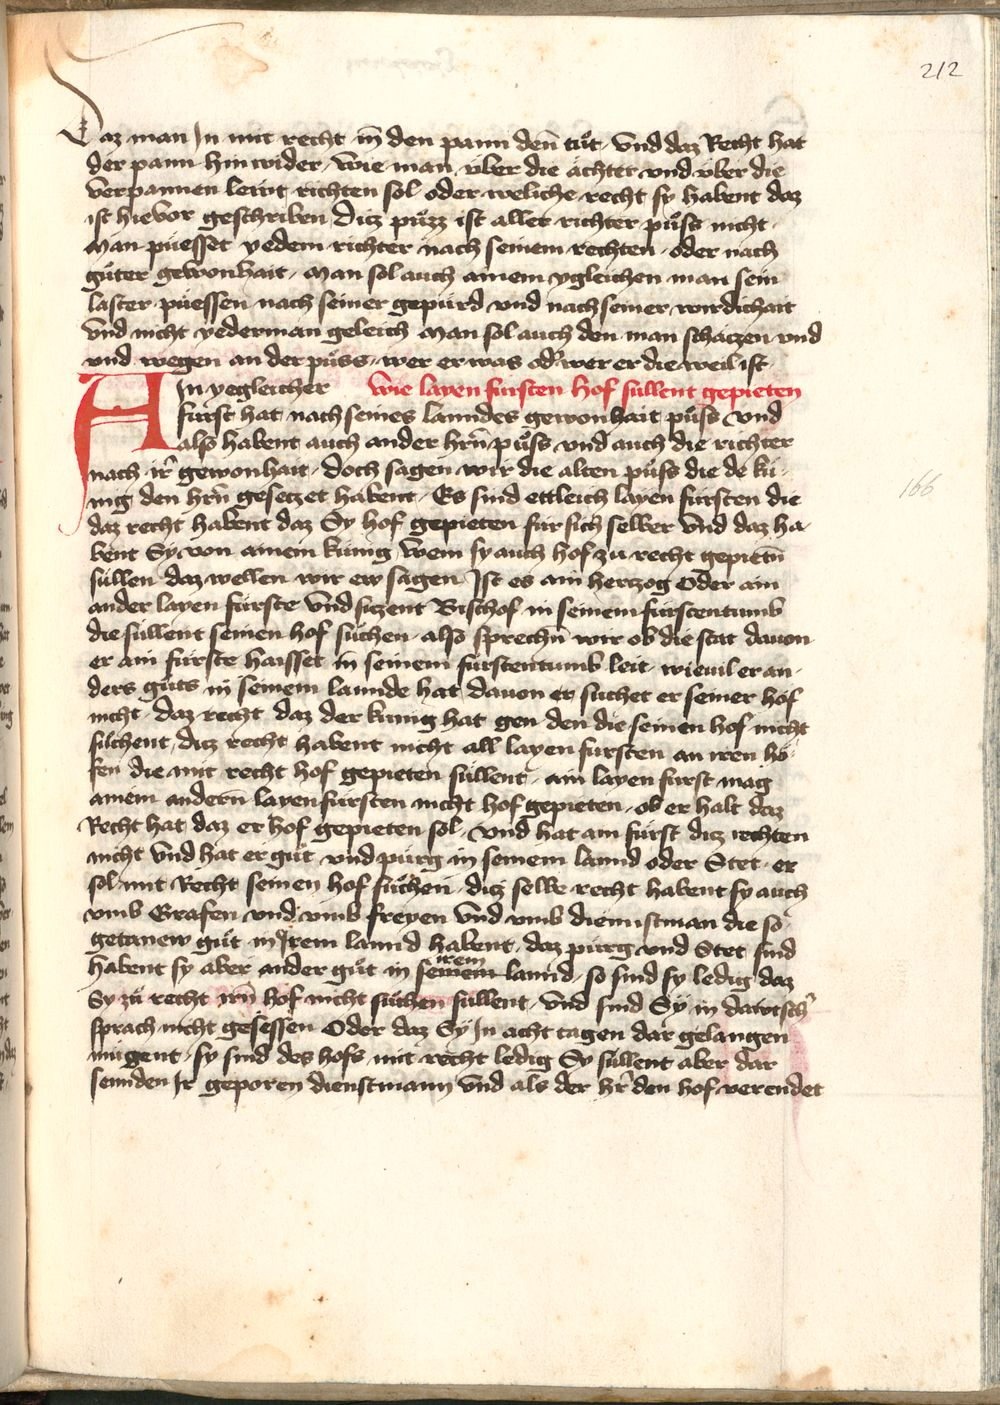 212
Daz man Jn mit recht in den pann den tůt · Vnd daz Recht hat
der pann hin wider · wie man vber die ächter vnd vber die
verpannen lewt richten sol oder weliche recht sy habent daz
ist hievor geschriben ditz půzz ist aller richter půss nicht ·
Man püesset yedem richter nach seinem rechten · oder nach
gůter gewonhait · Man sol auch ainem ygleichen man sein
laster püessen nach seiner gepurd vnd nach seiner wirdichait
Vnd nicht yederman geleich Man sol auch den man schatzen vnd
vnd wegen an der půss · wer er was od' wer er die weil ist ·
AIn yegleicher wie layen fursten Hof sullent gepieten
furst hat nach seines lanndes gewonhait půss vnd
also habent auch ander hrn̄ půss vnd auch die richter
nach ir̄ gewonhait · Doch sagen wir die alten půss die de ku-
nig den hrn̄ gesetzet habent · Es sind ettleich layen fursten die
daz recht habent daz Sy hof gepieten fur sich selber Vnd daz ha-
bent Sy von ainem kunig Wem sy auch hof zu recht gepietn̄
süllen daz wellen wir ew sagen Jst es ain hertzog Oder ain
ander layen fürste Vnd sitzent Bischof in seinem furstentumb
die süllent seinen hof süchen · also sprechn̄ wir ob die stat dauon
er ain fürste haisset in seinem fürstentumb leit · wieuil er an-
ders gůts in seinem lannde hat dauon er suchet er seiner hof
nicht · daz recht daz der kunig hat gen den die seinen hof nicht
suchent ditz recht habent nicht all layen fursten an iren hö-
fen die mit recht hof gepieten süllent · ain layen furst mag
ainem andern̄ layen fürsten nicht hof gepieten · ob er halt daz
Recht hat daz er hof gepieten sol · Vnd hat ain fürst ditz rechten
nicht Vnd hat er gůt vnd pürg in seinem lannd oder Stet · er
sol mit Recht seinen hof sůchen · ditz selbe recht habent sy auch
vmb Grafen vnd vmb freyen Vnd vmb diennstman die so-
getanew gůt in Jrem lannd habent · daz pürg vnd Stet sind
habent sy aber ander gůt in seinem irem lannd · so sind sy ledig daz
Sy zů recht irn̄ hof nicht sůchen sullent · Vnd sind Sy in dawtsch'
sprach nicht gesessen Oder daz Sy Jn acht tagen dar gelangen
mügent · sy sind des hofs mit recht ledig Sy sullent aber dar
sennden Jr geporen dienstmann Vnd als der hr̄ den hof verendet
166